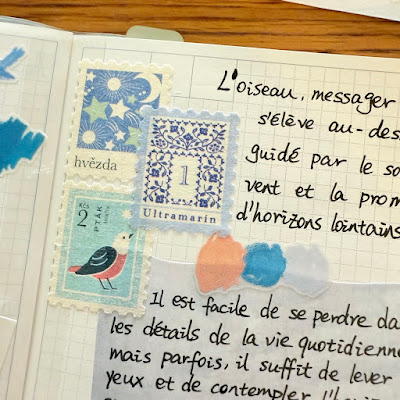 hvězda
1
Ultramarin
2
Kčs
PTÁK
L'oiseau, messager
s'élève au-des
guidé par le so
vent et la prom
d'horizons lointains
Il est facile de se perdre da
les détails de la vie quotidienne
mais parfois, il suffit de lever
yeux et de contempler l'hori